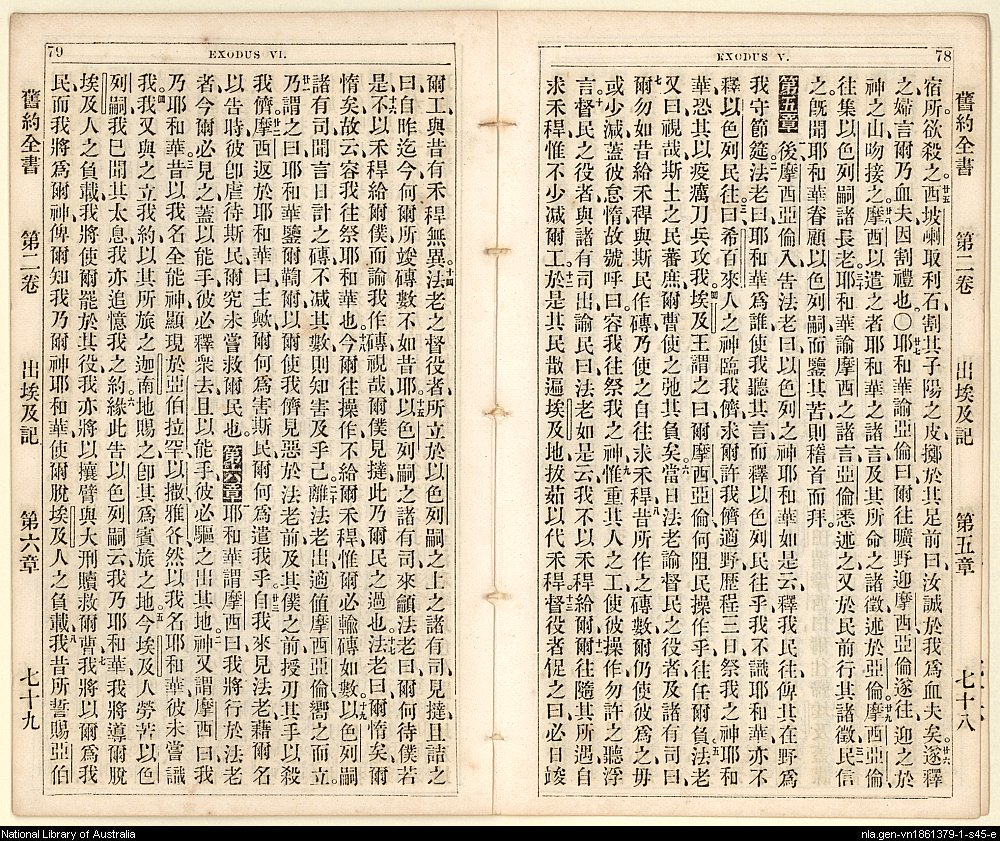 78
EXODUS V.
舊約全書 第二卷 出埃及記 第五章 七十八
宿所、欲殺之。廿五西坡喇取利石、割其子陽之皮、擲於其足前曰、汝誠於我爲血夫矣。廿六遂釋
之、婦言爾乃血夫、因割禮也。〇廿七耶和華諭亞倫曰、爾往曠野迎摩西、亞倫遂往、迎之於
神之山、吻接之。廿八摩西以遣之者耶和華之諸言、及其所命之諸徵、述於亞倫。廿九摩西亞倫
往集以色列嗣諸長老。三十耶和華諭摩西之諸言、亞倫悉述之、又於民前行其諸徵。三一民信
之、旣聞耶和華眷顧以色列嗣而鑒其苦、則稽首而拜。
第五章 一後摩西亞倫入告法老曰、以色列之神耶和華如是云、釋我民往、俾其在野爲
我守節筵。二法老曰、耶和華爲誰、使我聽其言而釋以色列民往乎、我不識耶和華、亦不
釋以色列民往。三曰、希百來人之神臨我儕、求爾許我儕適野、歷程三日、祭我之神耶和
華、恐其以疫癘刀兵攻我。四埃及王謂之曰、爾摩西亞倫何阻民操作乎、往任爾負。五法老
又曰、視哉、斯土之民蕃庶、爾曹使之弛其負矣。六當日法老諭督民之役者、及諸有司曰、
七爾勿如昔給禾稈與斯民作磚、乃使之自往求禾稈。八昔所作之磚數、爾仍使彼爲之、毋
或少減、蓋彼怠惰、故號呼曰、容我往祭我之神。九惟重其人之工、使彼操作、勿許之聽浮
言。十督民之役者與諸有司出諭民曰、法老如是云、我不以禾稈給爾。十一爾往隨其所遇、自
求禾稈、惟不少減爾工。十二於是其民散遍埃及地、拔茹以代禾稈。十三督役者促之曰、必日竣
79
EXODUS VI.
舊約全書 第二卷 出埃及記 第六章 七十九
爾工、與昔有禾稈無異。十四法老之督役者、所立於以色列嗣之上之諸有司見撻、且詰之
曰、自昨迄今、何爾所竣磚數不如昔耶。十五以色列嗣之諸有司來籲法老曰、爾何待僕若
是。十六不以禾稈給爾僕、而諭我作磚、視哉、爾僕見撻、此乃爾民之過也。十七法老曰、爾惰矣、爾
惰矣、故云容我往祭耶和華也。十八今爾往操作、不給爾禾稈、惟爾必輸磚如數。十九以色列嗣
諸有司聞言日計之磚不減其數、則知害及乎己。二十離法老出、適値摩西亞倫嚮之而立。
廿一乃謂之曰、耶和華鑒爾、鞫爾、以爾使我儕見惡於法老前、及其僕之前、授刃其手以殺
我儕。廿二摩西返於耶和華曰、主歟、爾何爲害斯民、爾何爲遣我乎。廿三自我來見法老、藉爾名
以告時、彼卽虐待斯民、爾究未嘗救爾民也。 第六章 一耶和華謂摩西曰、我將行於法老
者、今爾必見之、蓋以能手、彼必釋衆去、且以能手、彼必驅之出其地。二神又謂摩西曰、我
乃耶和華。三昔以我名全能神、顯現於亞伯拉罕、以撒、雅各、然以我名耶和華、彼未嘗識
我。四我又與之立我約、以其所旅之迦南地賜之、卽其爲賓旅之地。五今埃及人勞苦以色
列嗣、我已聞其太息、我亦追憶我之約。六緣此告以色列嗣云、我乃耶和華、我將導爾脫
埃及人之負載、我將使爾罷於其役、我亦將以攘臂與大刑贖救爾曹。七我將以爾爲我
民、而我將爲爾神、俾爾知我乃爾神耶和華、使爾脫埃及人之負載。八我昔所誓賜亞伯
National Library of Australia
nla.gen-vn1861379-1-s45-e